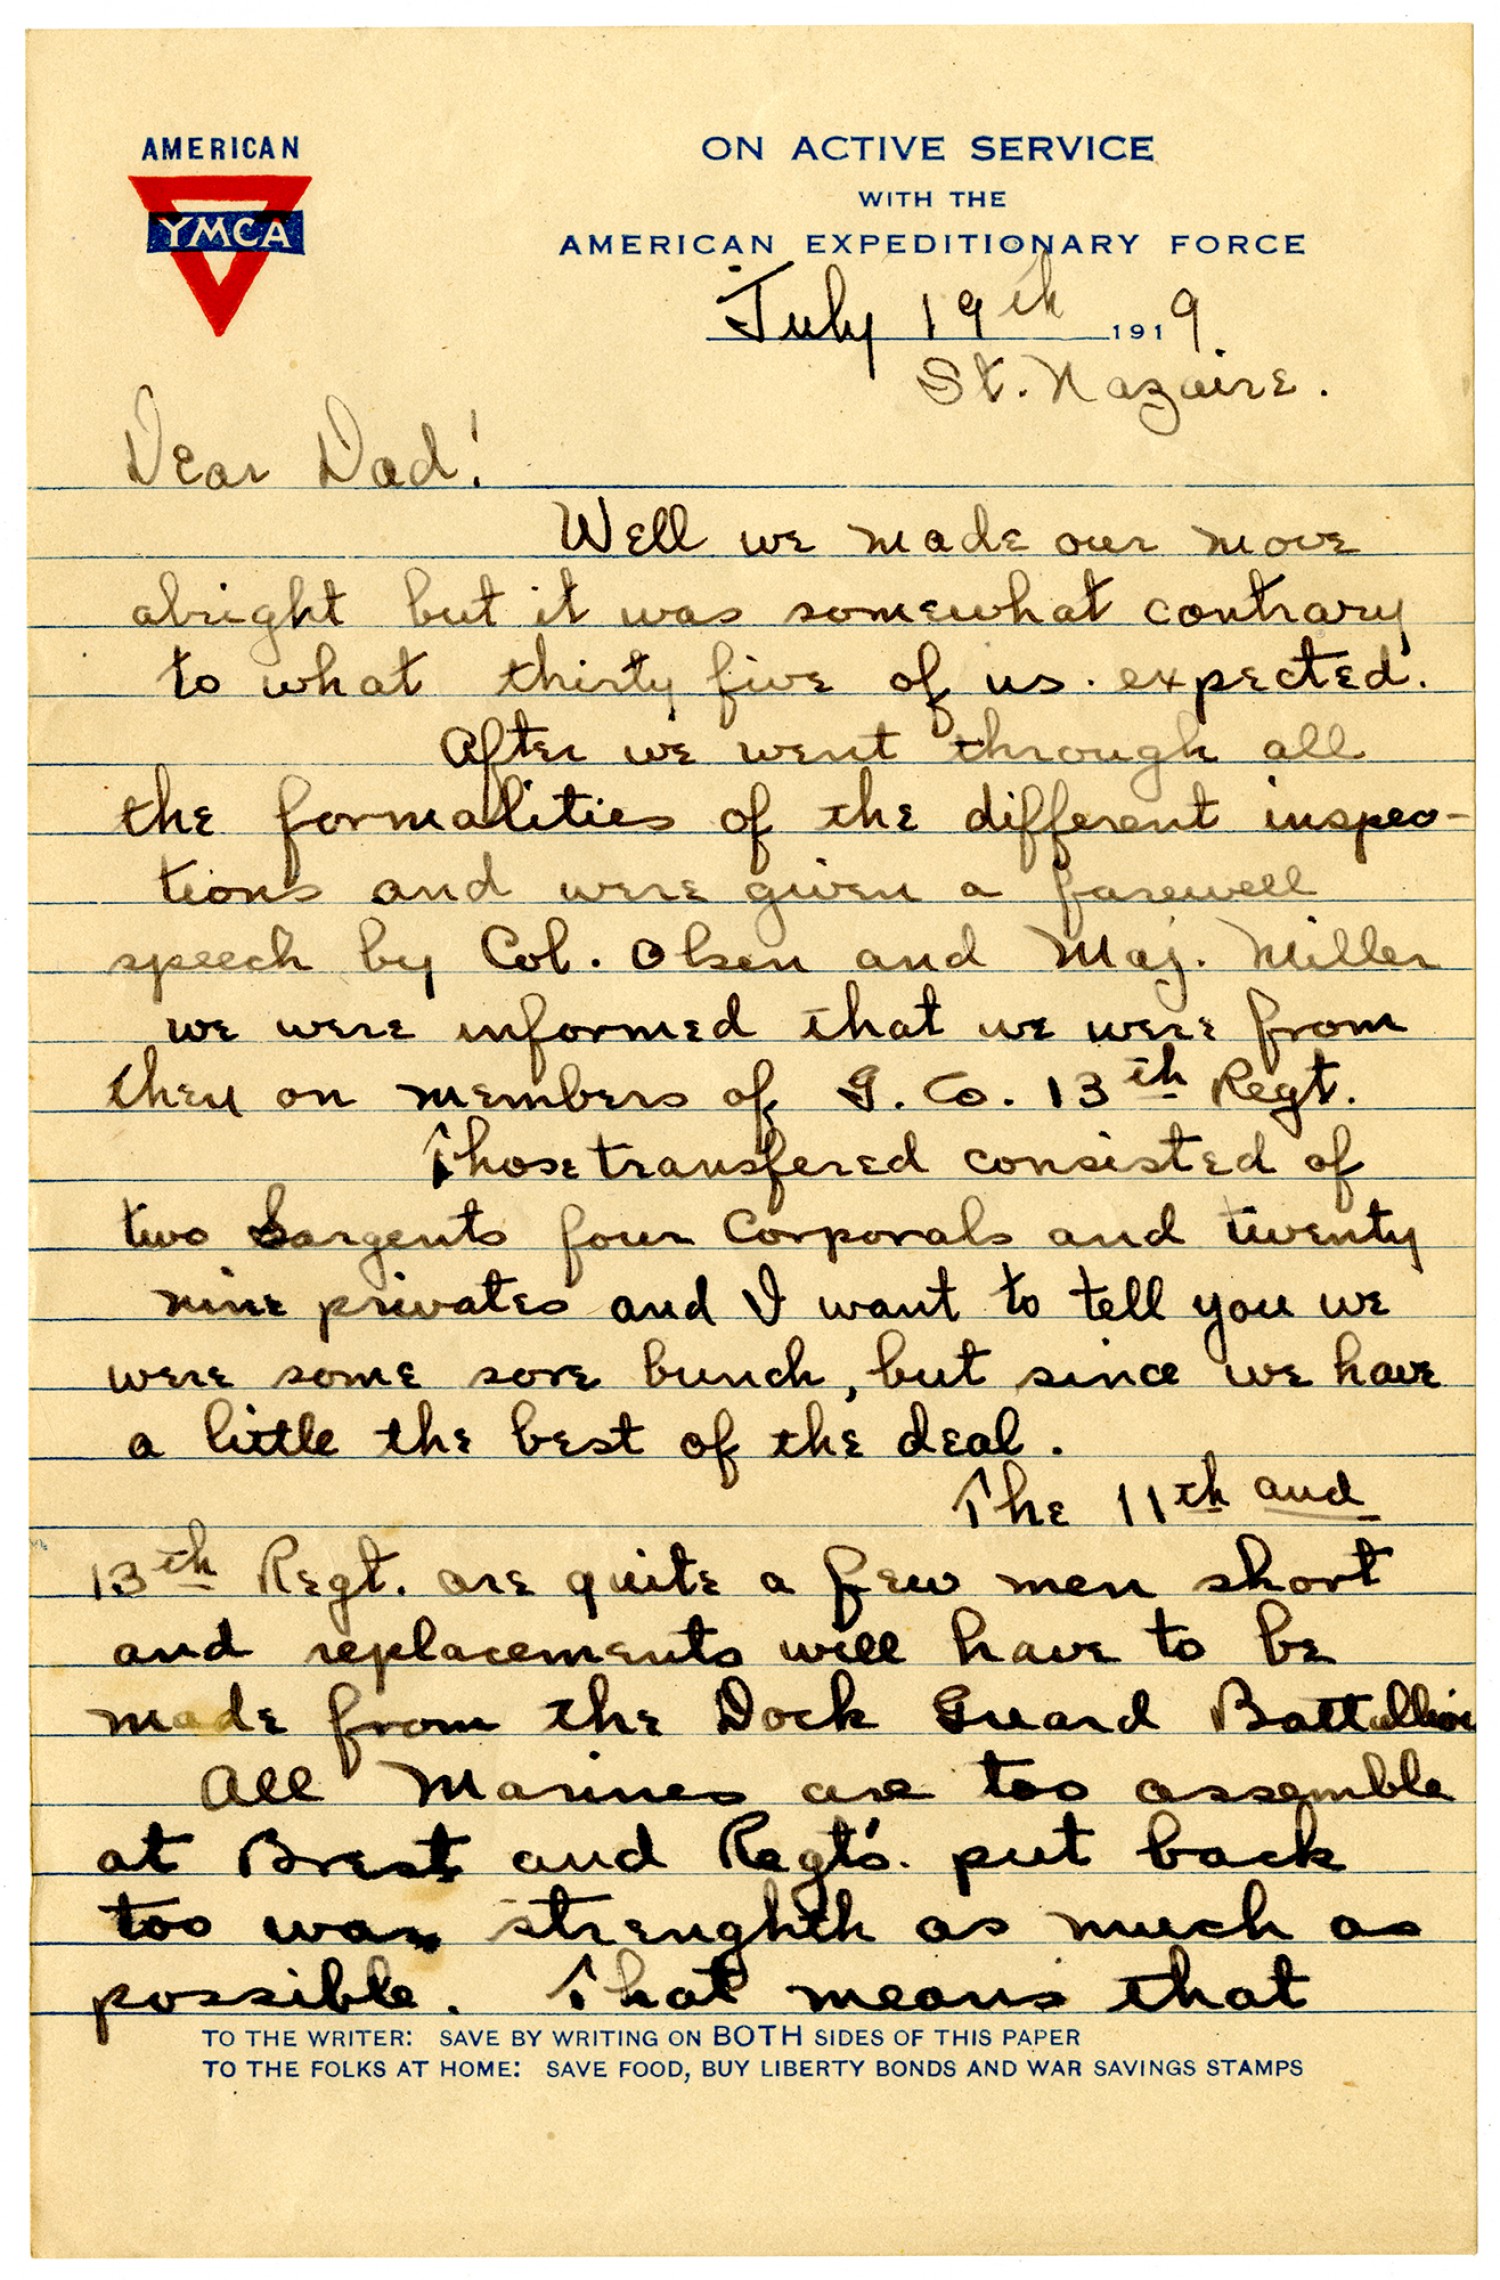 AMERICAN
YMCA
ON ACTIVE SERVICE
WITH THE
AMERICAN EXPEDITIONARY FORCE
July 19th 1919
St. Nazaire.
Dear Dad!
Well we made our move
alright but it was somewhat contrary
to what thirty five of us. expected.
After we went through all
the formalities of the different inspec-
tions and were given a farewell
speech by Col. Olsen and Maj. Miller
we were informed that we were from
then on members of G. Co. 13th Regt.
Those transfered consisted of
two Sargents four Corporals and twenty
nine privates and I want to tell you we
were some sore bunch, but since we have
a little the best of the deal.
The 11th and
13th Regt. are quite a few men short
and replacements will have to be
made from the Dock Guard Battallion
All Marines are too assemble
at Brest and Regt's. put back
too war strenghth as much as
possible. That means that
TO THE WRITER: SAVE BY WRITING ON BOTH SIDES OF THIS PAPER
TO THE FOLKS AT HOME: SAVE FOOD, BUY LIBERTY BONDS AND WAR SAVINGS STAMPS